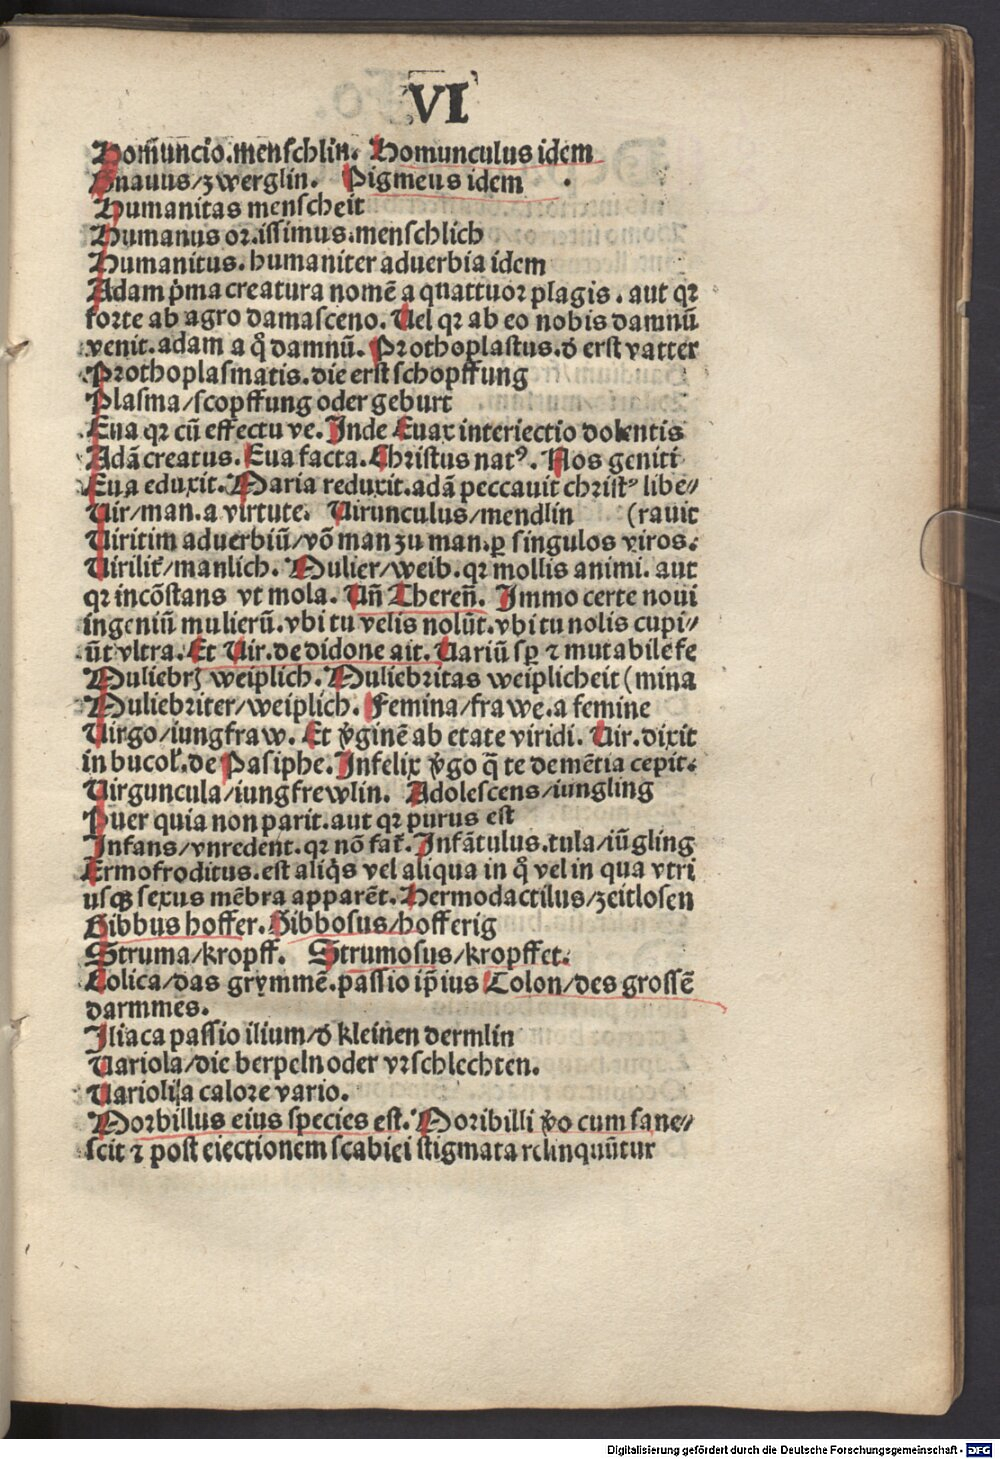 VI
Homūncio.menſchlin. Homunculus idem
Gnauus/zwerglin. Pigmeus idem
Humanitas menſcheit
Humanus oꝛ.iſſimus.menſchlich
Humanitus.humaniter aduerbia idem
Adam p̄ma creatura nomē a quattuoꝛ plagis. aut qꝛ
foꝛte ab agro damaſceno. Uel qꝛ ab eo nobis damnū
venit.adam a q̊ damnū. Pꝛothoplaſtus.đ erſt vatter
Pꝛothoplaſmatis.die erſt ſchopffung
Plaſma/ſcopffung oder geburt
Eua qꝛ cū effectu ve. Inde Euax interiectio dolentis
Adā creatus. Eua facta. Chriſtus natꝰ. Nos geniti
Eua eduxit. Maria reduxit.adā peccauit chꝛiſtꝰ libe⸗
Uir/man.a virtute. Uirunculus/mendlin (rauit
Uiritim aduerbiū/vō man zu man.ꝑ ſingulos viros.
Uirilit̄/manlich. Mulier/weib.qꝛ mollis animi. aut
qꝛ incōſtans vt mola. Un̄ Theren̄. Immo certe noui
ingeniū mulierū.vbi tu velis nolūt.vbi tu nolis cupi⸗
ūt vltra. Et Uir.de didone ait. Uariū ſꝑ ⁊ mutabile fe
Muliebꝛꝫ weiplich. Muliebꝛitas weiplicheit (mina
Muliebꝛiter/weiplich. Femina/frawe.a femine
Uirgo/iungfraw. Et v̄ginē ab etate viridi. Uir.dixit
in bucol̄.de Paſiphe. Infelix v̄go q̄ te demētia cepit.
Uirguncula/iungfrewlin. Adoleſcens/iungling
Puer quia non parit.aut qꝛ purus eſt
Infans/vnredent.qꝛ nō fat̄. Infātulus.tula/iūgling
Ermofroditus.eſt aliq̇s vel aliqua in q̊ vel in qua vtri
uſqꝫ ſexus mēbra apparēt. Hermodactilus/zeitloſen
Gibbus hoffer. Gibboſus/hofferig
Struma/kropff. Strumoſus/kropffet.
Colica/das grymmē.paſſio ip̄ius Colon/des groſſē
darmmes.
Iliaca paſſio ilium/đ kleinen dermlin
Uariola/die berpeln oder vꝛſchlechten.
Uariolſa calore vario.
Moꝛbillus eius ſpecies eſt. Moꝛibilli v̄o cum ſane⸗
ſcit ⁊ poſt eiectionem ſcabiei ſtigmata relinquūtur
Digitalisierung gefördert durch die Deutsche Forschungsgemeinschaft - DFG